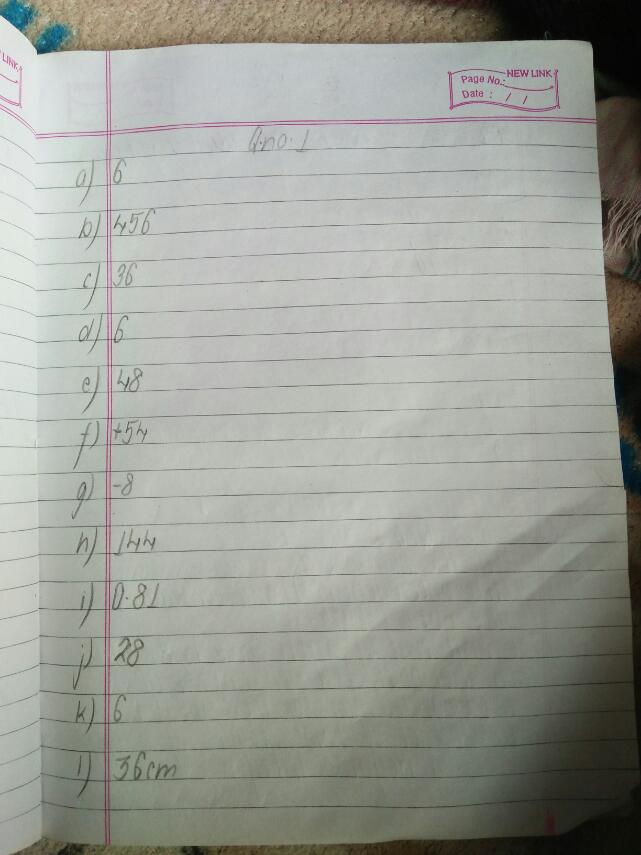 LINK
NEW LINK
Page No.:
Date : / /
Q.no.1
a) 6
b) 456
c) 36
d) 6
e) 48
f) +54
g) -8
h) 144
i) 0.81
j) 28
k) 6
l) 36cm